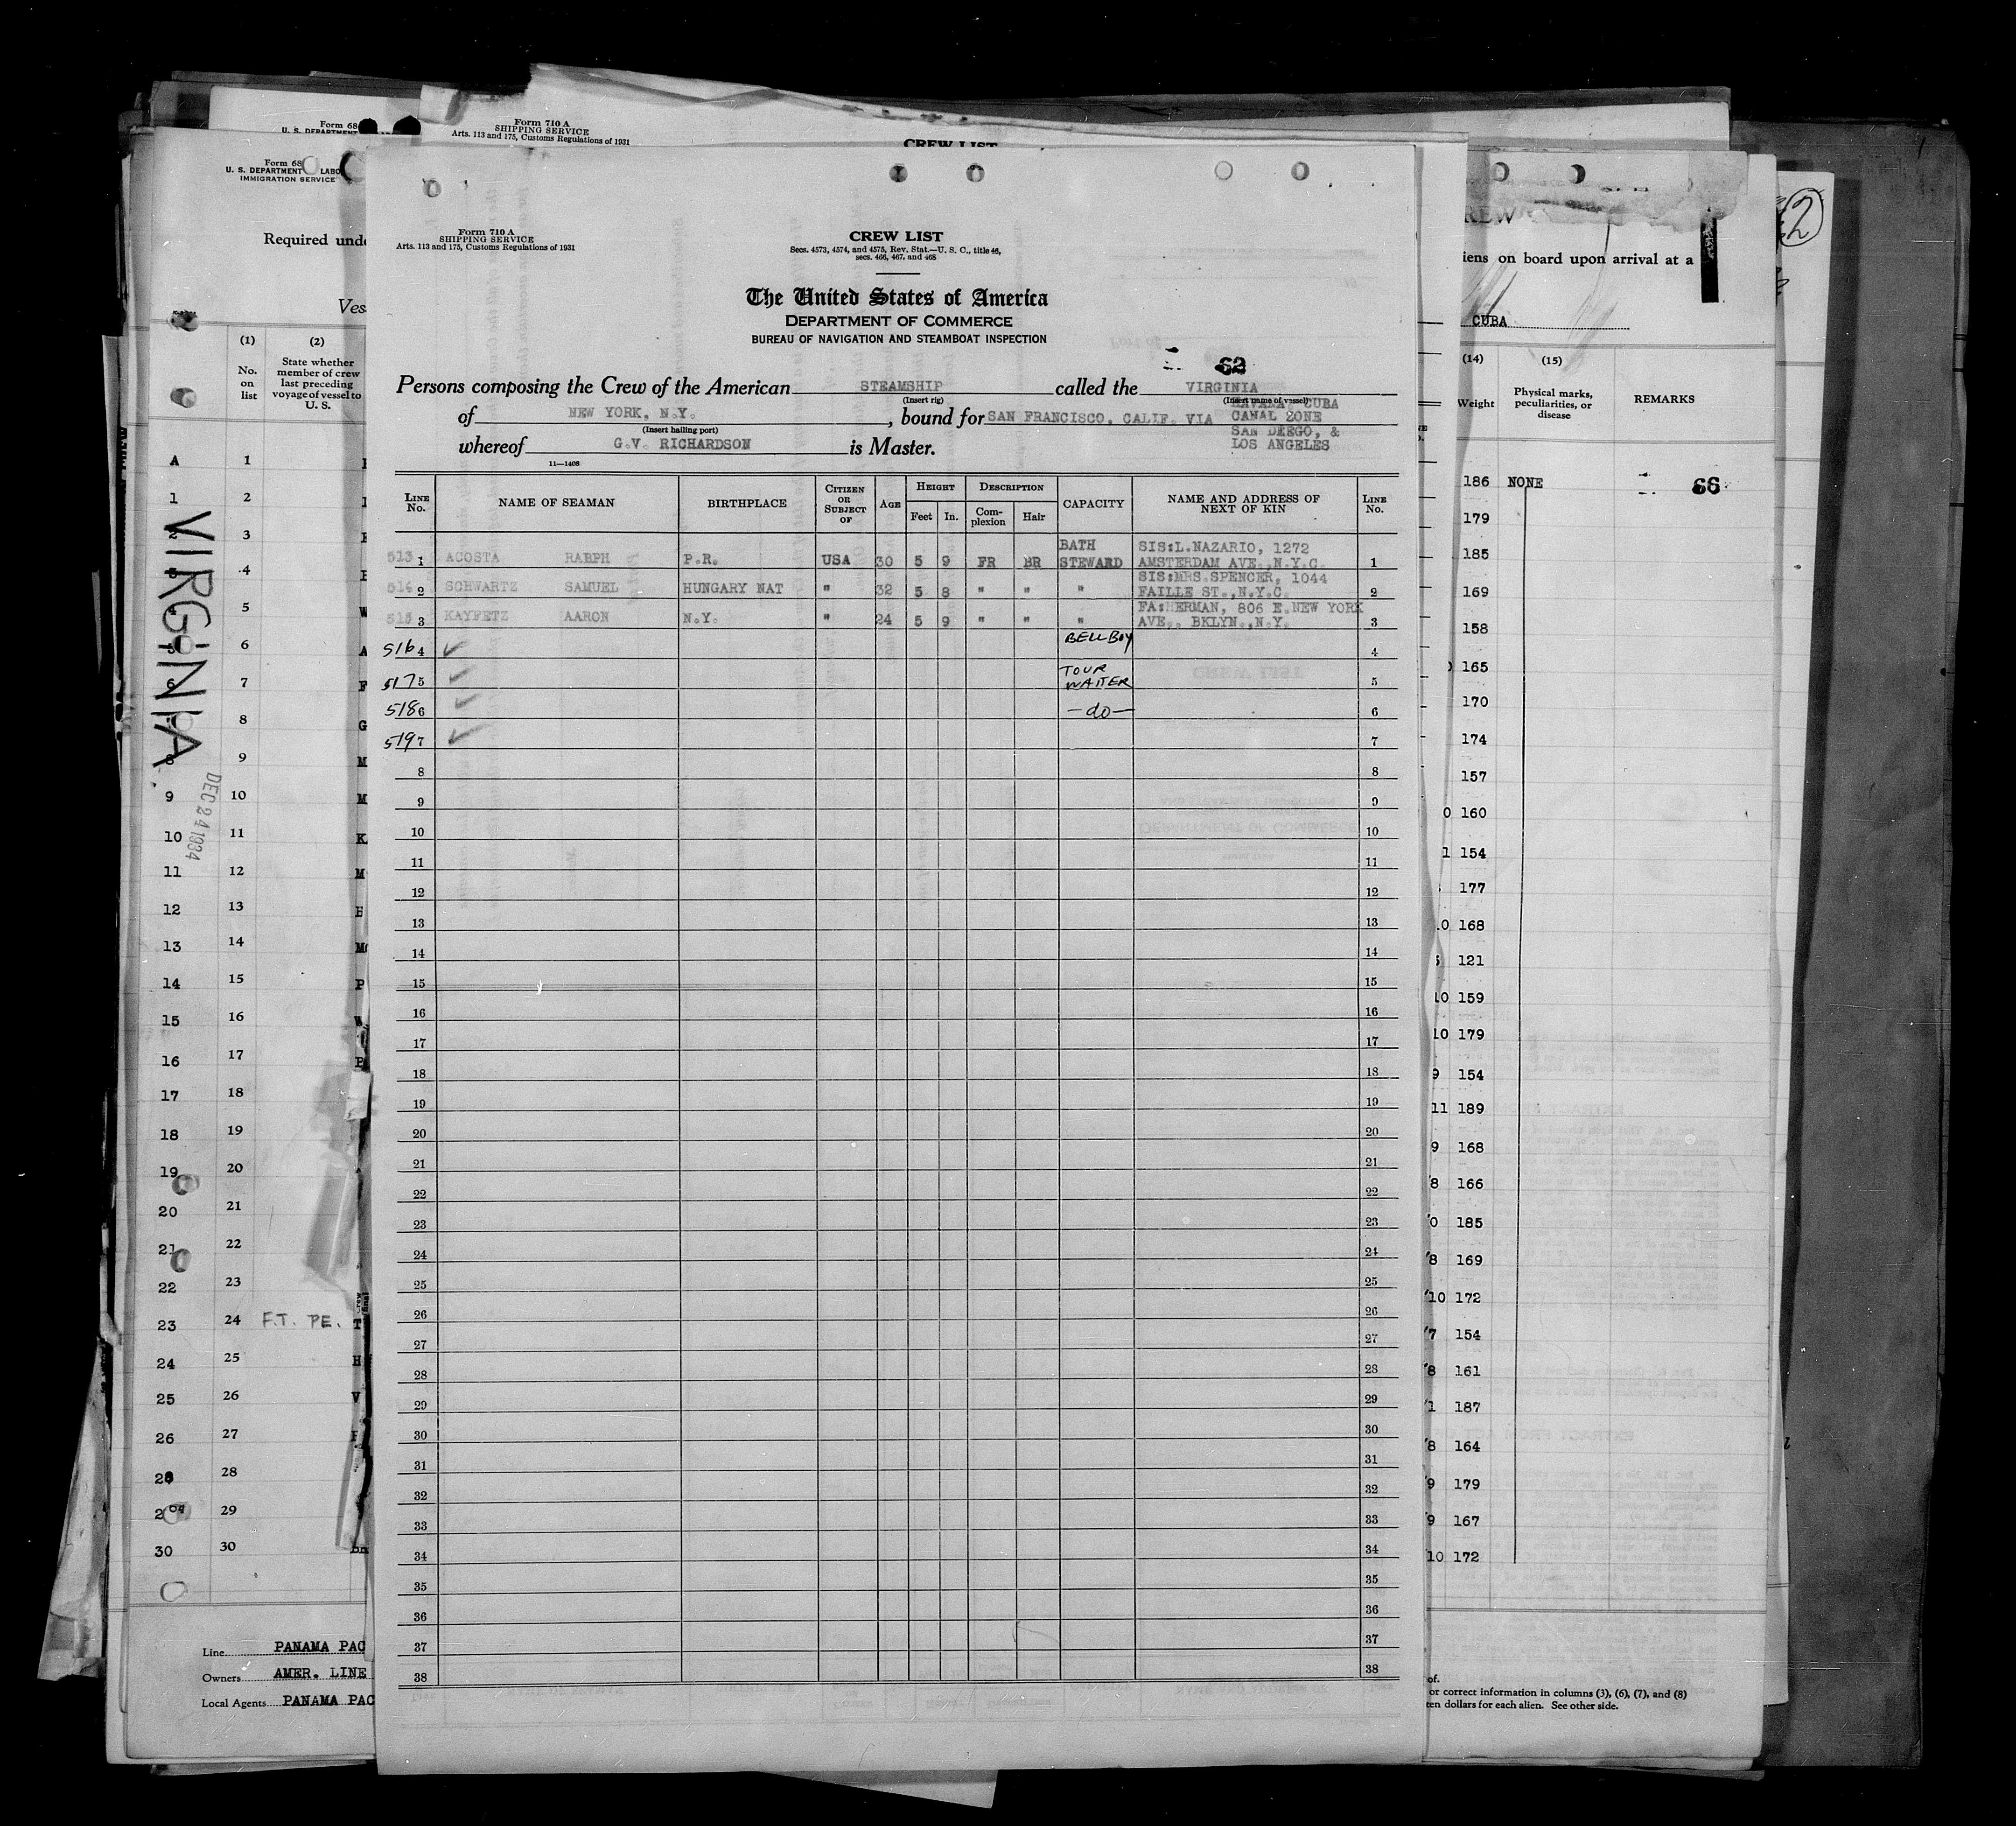 Form 710 A
SHIPPING SERVICE
Arts. 113 and 175, Customs Regulations of 1931
CREW LIST
Form 68
U. S. DEPARTMENT
Form 68
U. S. DEPARTMENT LABO
IMMIGRATION SERVICE
Required unde
Ves
(1) (2)
No. on list
State whether member of crew last preceding voyage of vessel to U. S.
VIRGINIA
DEC 24 1934
A 1
1 2
2 3
3 4
4 5
5 6
6 7
7 8
8 9
9 10
10 11
11 12
12 13
13 14
14 15
15 16
16 17
17 18
18 19
19 20
20 21
21 22
22 23
23 24 F.T. PE.
24 25
25 26
26 27
28
29
30 30
Line PANAMA PAC
Owners AMER. LINE
Local Agents PANAMA PAC
Form 710 A
SHIPPING SERVICE
Arts. 113 and 175, Customs Regulations of 1931
CREW LIST
Secs. 4573, 4574, and 4575, Rev. Stat.—U. S. C., title 46,
secs. 466, 467, and 468
The United States of America
DEPARTMENT OF COMMERCE
BUREAU OF NAVIGATION AND STEAMBOAT INSPECTION
62
Persons composing the Crew of the American STEAMSHIP called the VIRGINIA
(Insert rig) (Insert name of vessel)
HAVANA, CUBA
of NEW YORK, N.Y. , bound for SAN FRANCISCO, CALIF. VIA CANAL ZONE
(Insert hailing port)
SAN DIEGO, &
whereof G.V. RICHARDSON is Master. LOS ANGELES
11—1408
LINE No. NAME OF SEAMAN BIRTHPLACE CITIZEN OR SUBJECT OF AGE HEIGHT Feet In. DESCRIPTION Complexion Hair CAPACITY NAME AND ADDRESS OF NEXT OF KIN LINE No.
BATH SIS:L.NAZARIO, 1272
513 1 ACOSTA RALPH P.R. USA 30 5 9 FR BR STEWARD AMSTERDAM AVE.,N.Y.C. 1
SIS:MRS.SPENCER, 1044
514 2 SCHWARTZ SAMUEL HUNGARY NAT " 32 5 8 " " " FAILLE ST.,N.Y.C. 2
FA:HERMAN, 806 E.NEW YORK
515 3 KAYFETZ AARON N.Y. " 24 5 9 " " " AVE., BKLYN.,N.Y. 3
516 4 ✓ BELL BOY 4
517 5 ✓ TOUR WAITER 5
518 6 ✓ —do— 6
519 7 ✓ 7
8 8
9 9
10 10
11 11
12 12
13 13
14 14
15 15
16 16
17 17
18 18
19 19
20 20
21 21
22 22
23 23
24 24
25 25
26 26
27 27
28 28
29 29
30 30
31 31
32 32
33 33
34 34
35 35
36 36
37 37
38 38
2
REW
iens on board upon arrival at a
CUBA
(14) (15)
Weight Physical marks, peculiarities, or disease REMARKS
186 NONE 66
179
185
169
158
165
170
174
157
160
154
177
168
121
159
179
154
189
168
166
185
169
172
154
161
187
164
179
167
172
of.
or correct information in columns (3), (6), (7), and (8)
ten dollars for each alien. See other side.